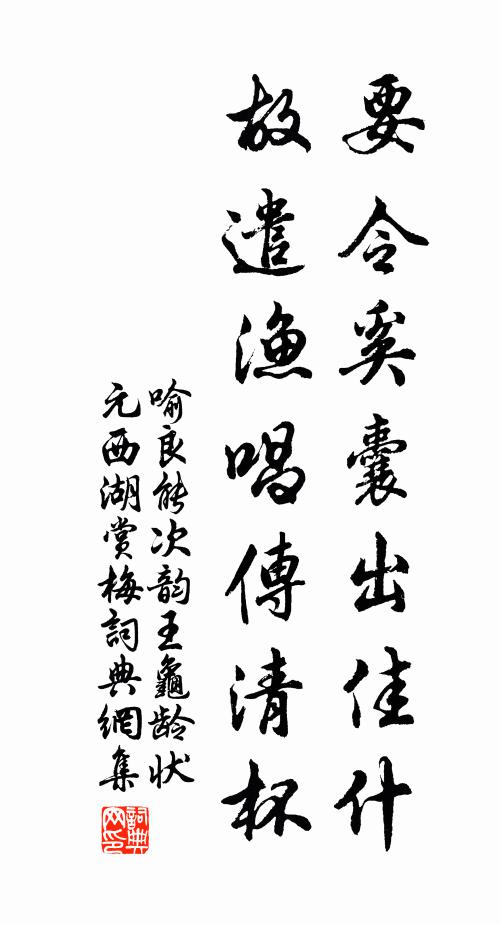 要令奚囊出佳什
故遣漁唱傳清杯
喻良能次韵王龜龄状
元西湖賞梅詞典網集
詞典
网印